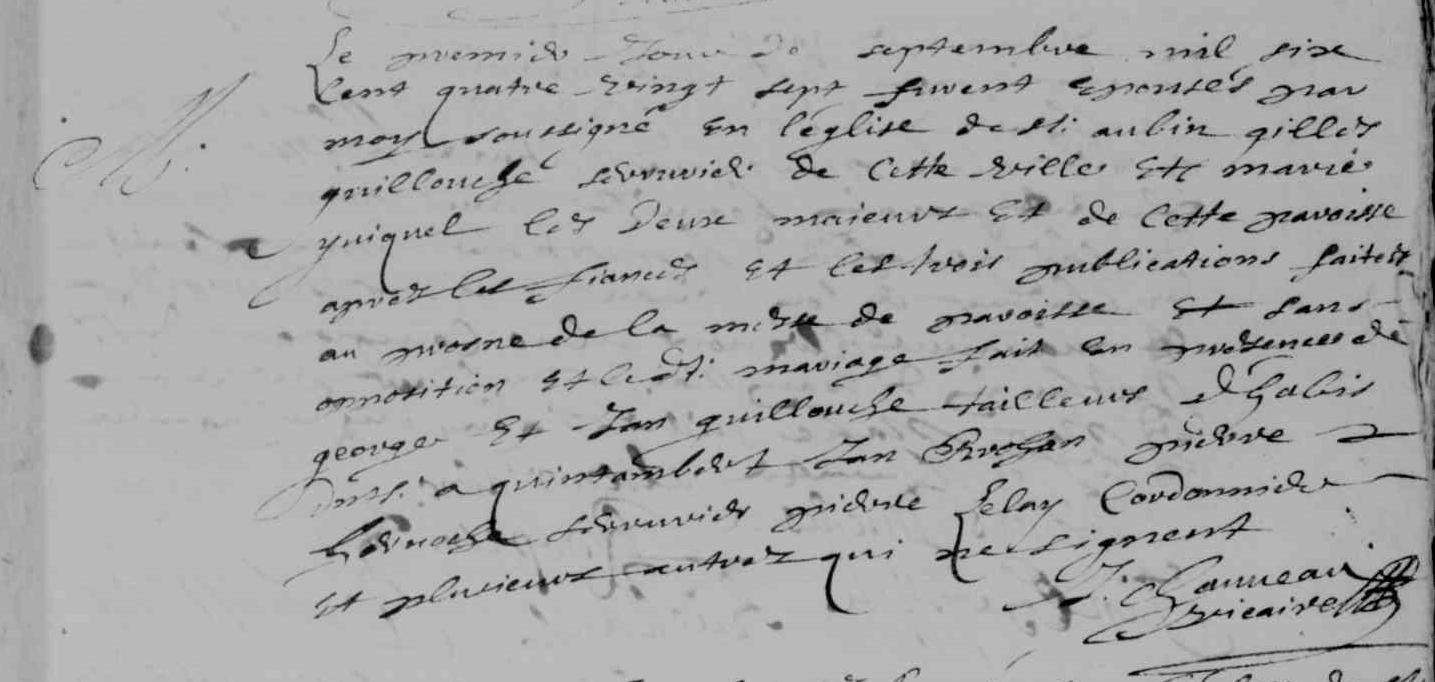 Le premier Jour de septembre mil six
cent quatre vingt sept furent epousés par
moy soussigné en l'eglise de st: aubin gilles
guillouché serrurier de cette ville et marie
yviquel les deux maieurs et de cette paroisse
M.
aprez les fiances et les trois publications faites
au prosne de la messe de paroisse et sans
opposition et led: mariage fait en presences de
george et Jan guillouche tailleurs d'habis
a quintambert Jan pierre
serrurier pierre Lelay Cordonnier
et plusieurs autrez qui ne signent
vicaire